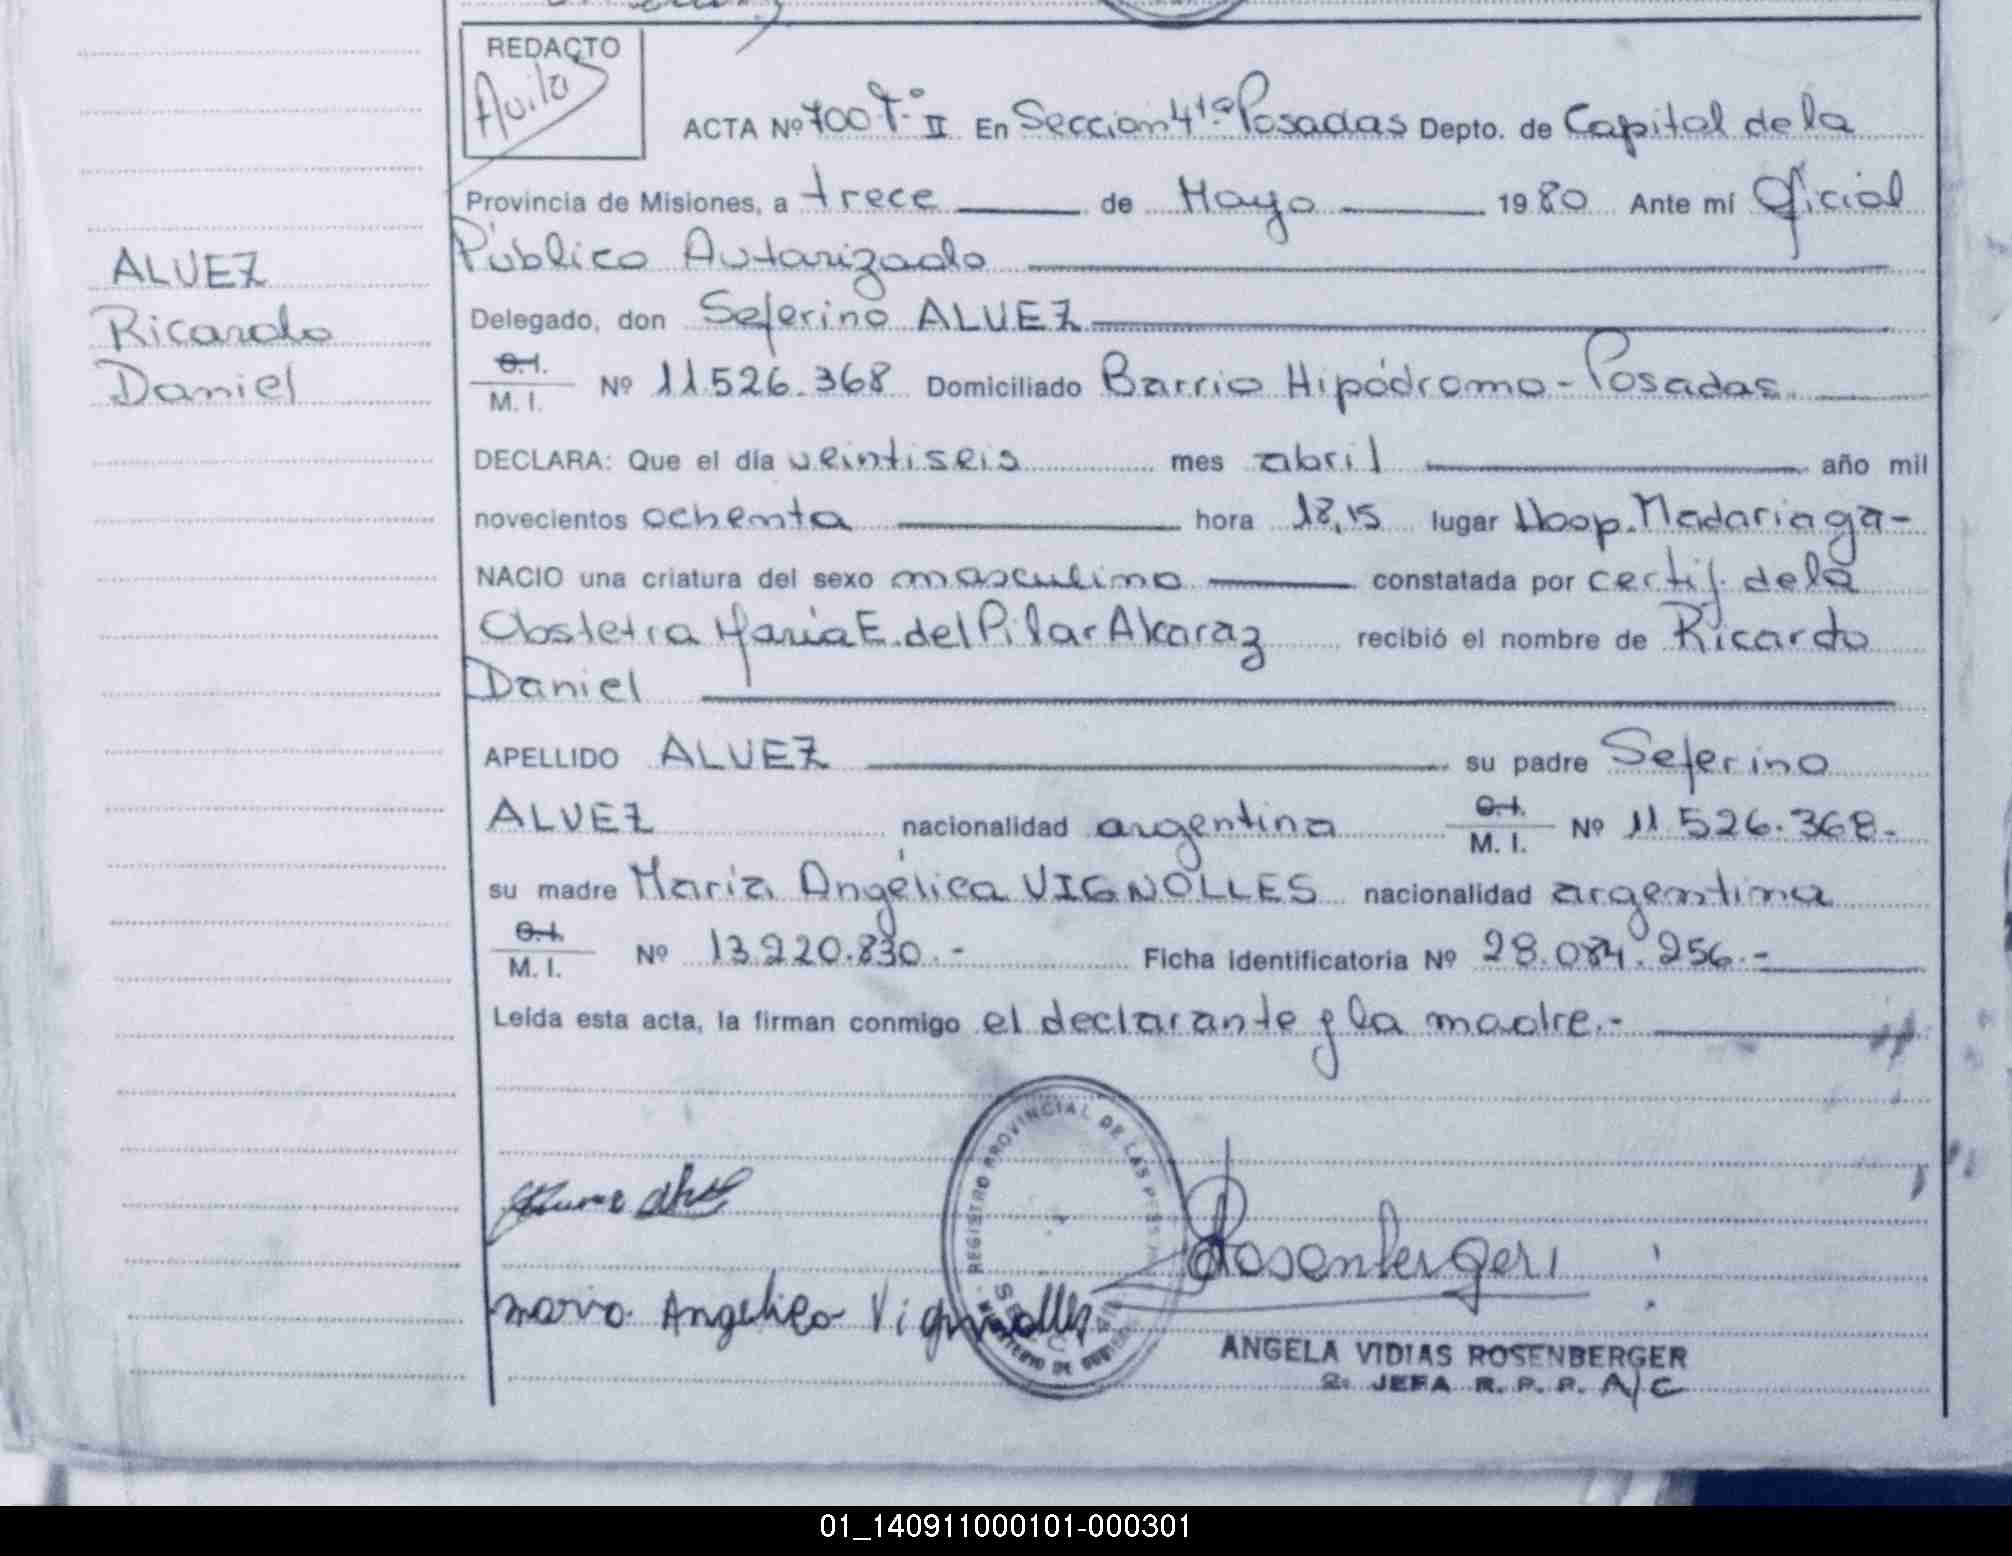 REDACTO
Avila
ACTA Nº 700 Tº II En Sección 4ta Posadas Depto. de Capital de la
Provincia de Misiones, a trece de Mayo 1980 Ante mí Oficial
Público Autorizado
Delegado, don Seferino ALVEZ
ALVEZ
Ricardo
Daniel
O.I.
M. I. Nº 11.526.368 Domiciliado Barrio Hipódromo - Posadas.
DECLARA: Que el día veintiseis mes abril año mil
novecientos ochenta hora 18,15 lugar Hosp. Madariaga-
NACIO una criatura del sexo masculino constatada por certif. de la
Obstetra María E. del Pilar Alcaraz recibió el nombre de Ricardo
Daniel
APELLIDO ALVEZ su padre Seferino
ALVEZ nacionalidad argentina O.I.
M. I. Nº 11.526.368.-
su madre María Angélica VIGNOLLES nacionalidad argentina
O.I.
M. I. Nº 13.220.830.- Ficha identificatoria Nº 28.084.256.-
Leída esta acta, la firman conmigo el declarante y la madre.-
REGISTRO PROVINCIAL DE LAS
Maria Angelica Vignolles
Rosenberger
ANGELA VIDIAS ROSENBERGER
2ª JEFA R. P. P. A/C
01_140911000101-000301